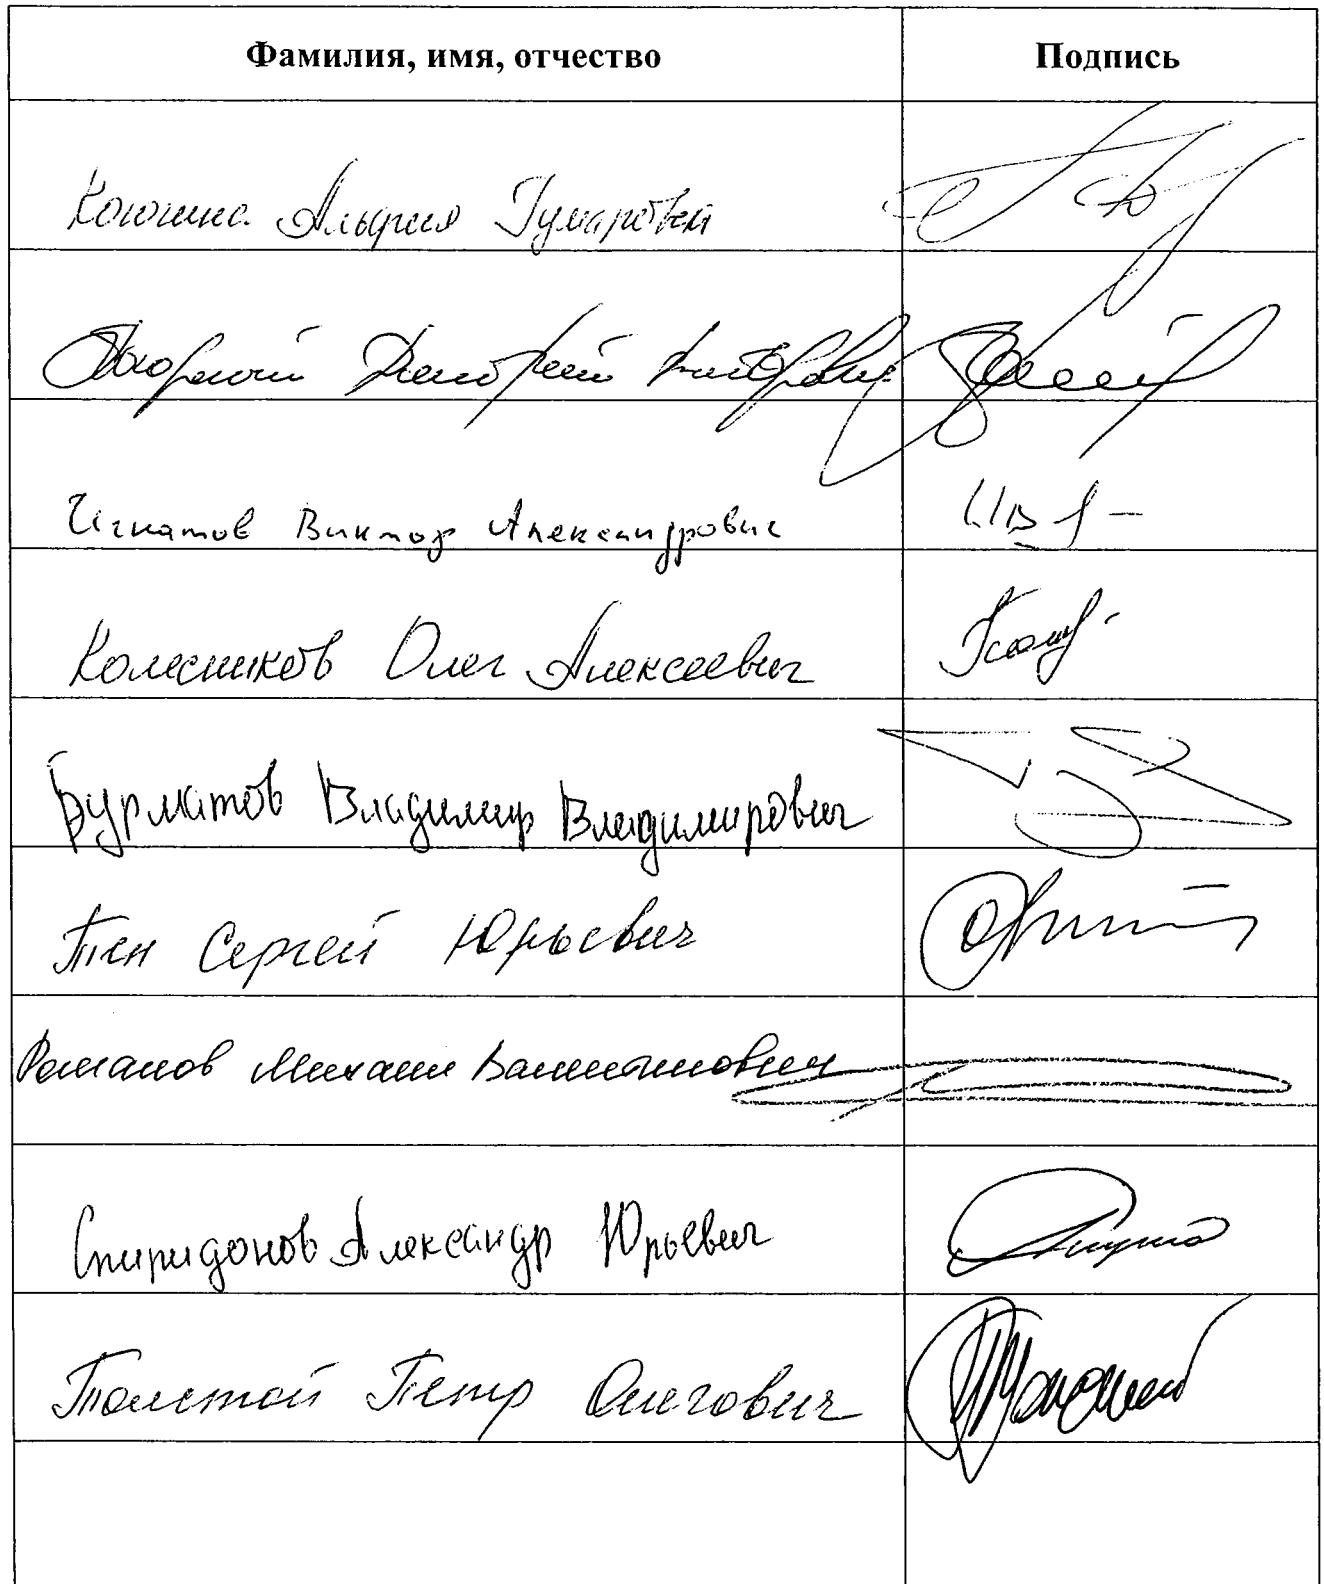 Фамилия, имя, отчество Подпись
Когогина Альфия Гумаровна
Скоринов Дмитрий Викторович
Игнатов Виктор Александрович
Колесников Олег Алексеевич
Бурматов Владимир Владимирович
Тен Сергей Юрьевич
Романов Михаил Валентинович
Спиридонов Александр Юрьевич
Толстой Петр Олегович